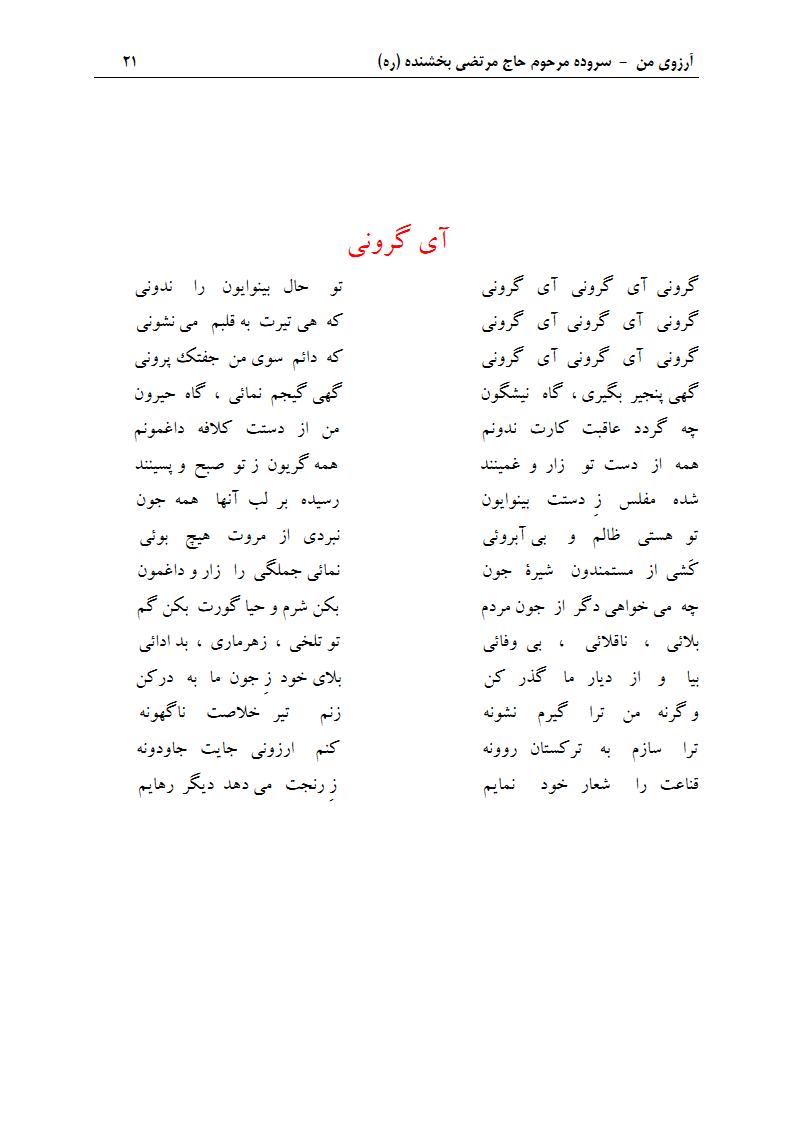 آرزوی من - سروده مرحوم حاج مرتضی بخشنده (ره) ۲۱
آی گرونی
گرونی آی گرونی آی گرونی تو حال بینوایون را ندونی
گرونی آی گرونی آی گرونی که هی تیرت به قلبم می نشونی
گرونی آی گرونی آی گرونی که دائم سوی من جفتک پرونی
گهی پنجیر بگیری ، گاه نیشگون گهی گیجم نمائی ، گاه حیرون
چه گردد عاقبت کارت ندونم من از دستت کلافه داغمونم
همه از دست تو زار و غمینند همه گریون ز تو صبح و پسینند
شده مفلس زِ دستت بینوایون رسیده بر لب آنها همه جون
تو هستی ظالم و بی آبروئی نبردی از مروت هیچ بوئی
کَشی از مستمندون شیرۀ جون نمائی جملگی را زار و داغمون
چه می خواهی دگر از جون مردم بکن شرم و حیا گورت بکن گم
بلائی ، ناقلائی ، بی وفائی تو تلخی ، زهرماری ، بد ادائی
بیا و از دیار ما گذر کن بلای خود زِ جون ما به درکن
و گرنه من ترا گیرم نشونه زنم تیر خلاصت ناگهونه
ترا سازم به ترکستان روونه کنم ارزونی جایت جاودونه
قناعت را شعار خود نمایم زِ رنجت می دهد دیگر رهایم